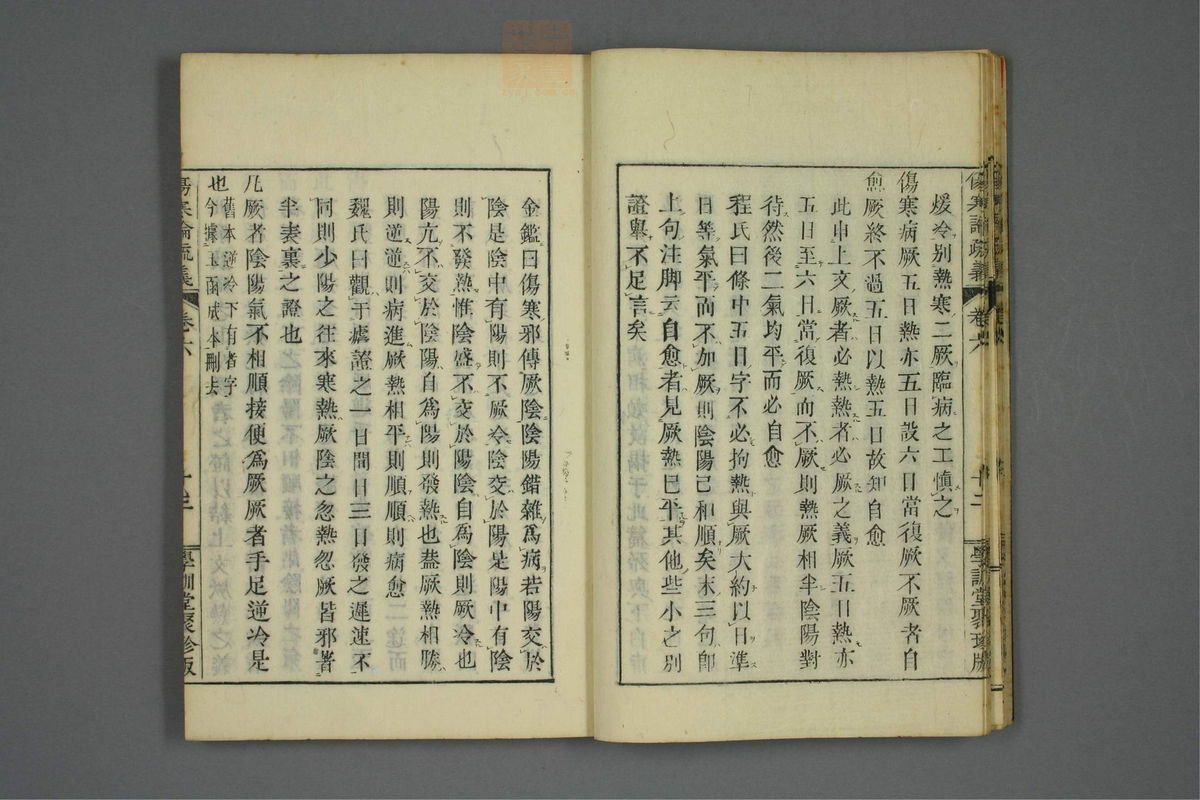 傷寒論疏義 卷六 十二 學訓堂聚珍版
煖冷別熱寒二厥臨病之工愼之
傷寒病厥五日熱亦五日設六日當復厥不厥者自
愈厥終不過五日以熱五日故知自愈
此申上文厥者必熱熱者必厥之義厥五日熱亦
五日至六日當復厥而不厥則熱厥相半陰陽對
待然後二氣均平而必自愈
程氏曰條中五日字不必拘熱與厥大約以日準
日等氣平而不加厥則陰陽已和順矣末三句卽
上句注脚云自愈者見厥熱已平其他些小之別
證舉不足言矣
金鑑曰傷寒邪傳厥陰陰陽錯雜爲病若陽交於
陰是陰中有陽則不厥冷陰交於陽是陽中有陰
則不發熱惟陰盛不交於陽陰自爲陰則厥冷也
陽亢不交於陰陽自爲陽則發熱也蓋厥熱相勝
則逆逆則病進厥熱相平則順順則病愈
魏氏曰觀于瘧證之一日間日三日發之遲速不
同則少陽之往來寒熱厥陰之忽熱忽厥皆邪著
半表裏之證也
凡厥者陰陽氣不相順接便爲厥厥者手足逆冷是
也舊本逆冷下有者字
今據玉函成本刪去
傷寒論疏義 卷六 十三 學訓堂聚珍版